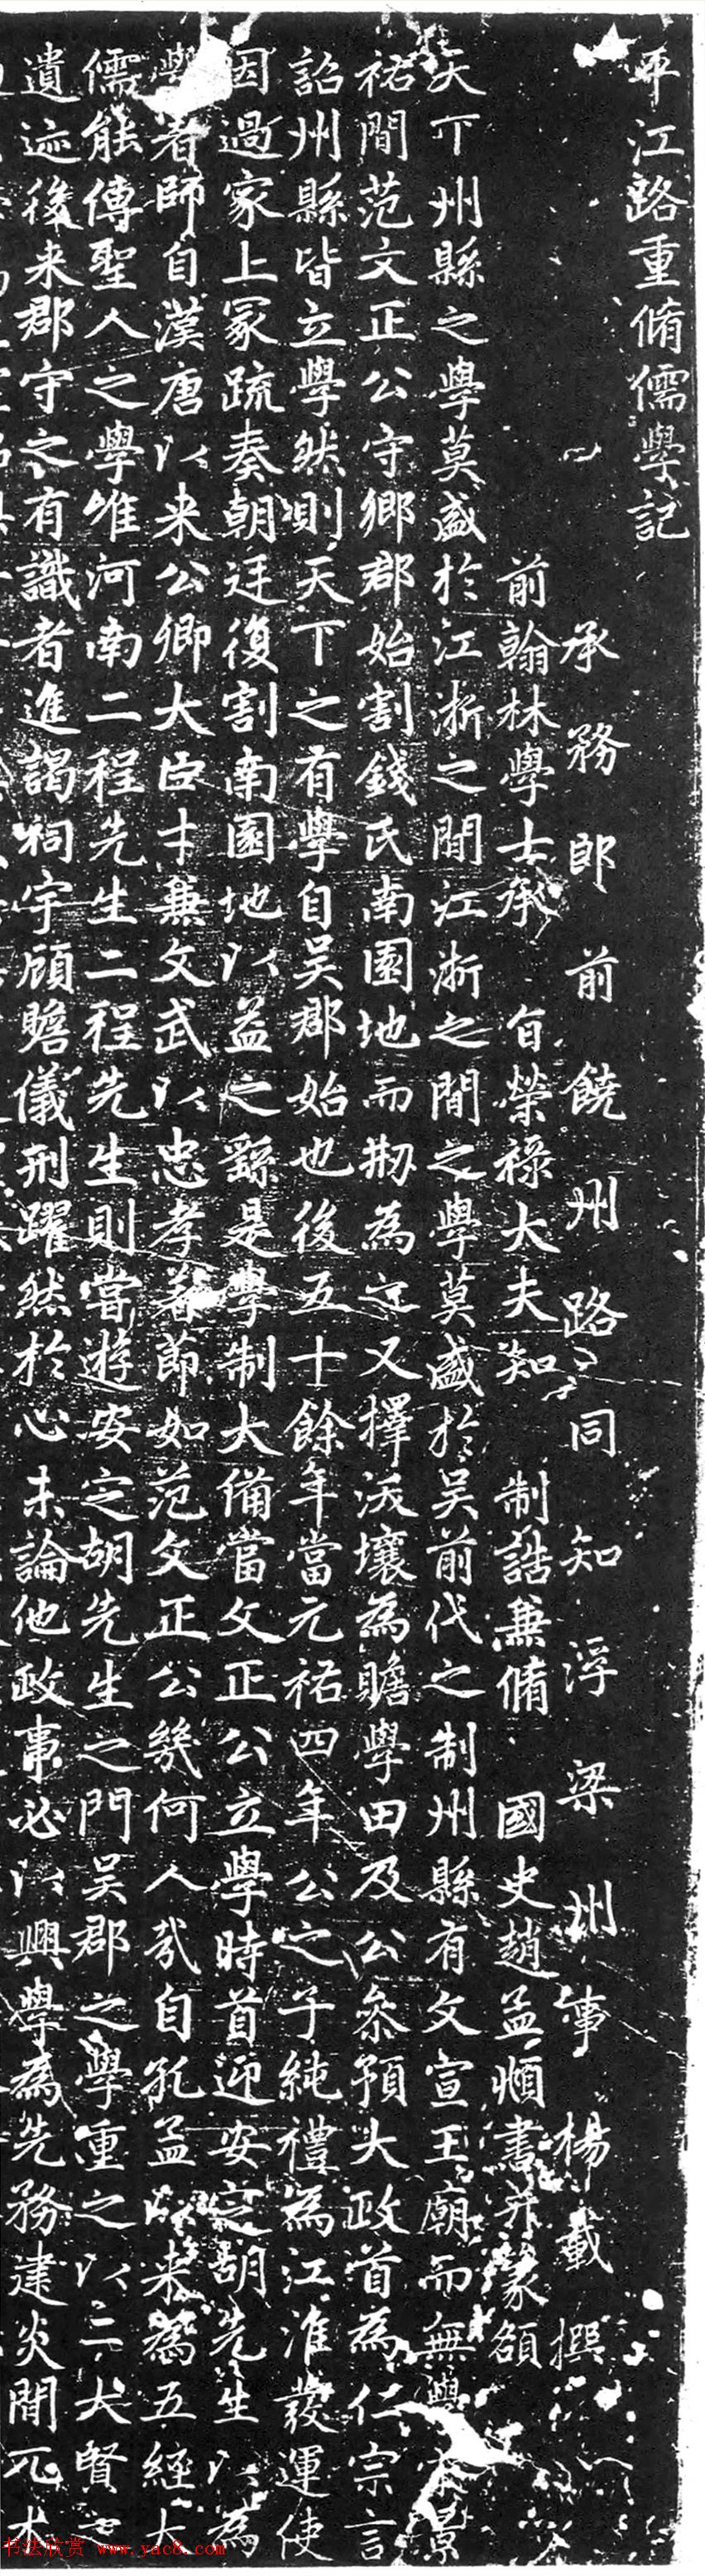 平江路重脩儒學記
承務郎前饒州路同知浮梁州事楊載撰
前翰林學士承旨榮祿大夫知制誥兼脩國史趙孟頫書并篆額
天下州縣之學莫盛於江浙之間江浙之間之學莫盛於吳前代之制州縣有文宣王廟而無學宋景
祐間范文正公守鄉郡始割錢氏南園地而刱為之又擇沃壤為贍學田及公參預大政首為仁宗言
詔州縣皆立學然則天下之有學自吳郡始也後五十餘年當元祐四年公之子純禮為江淮發運使
因過家上冢疏奏朝廷復割南園地以益之繇是學制大備當文正公立學時首迎安定胡先生以為
學者師自漢唐以來公卿大臣才兼文武以忠孝著節如范文正公幾何人哉自孔孟以來為五經大
儒能傳聖人之學唯河南二程先生二程先生則嘗遊安定胡先生之門吳郡之學重之以二大賢之
遺迹後來郡守之有識者進謁祠宇顧瞻儀刑躍然於心未論他政事必以興學為先務建炎間兀朮
书法欣赏 www.yac8.com